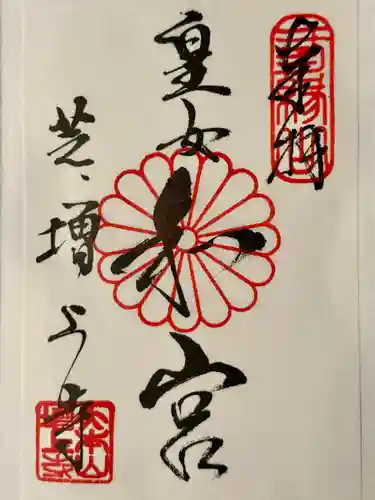 奉拝
皇女
和
宮
芝、増上寺